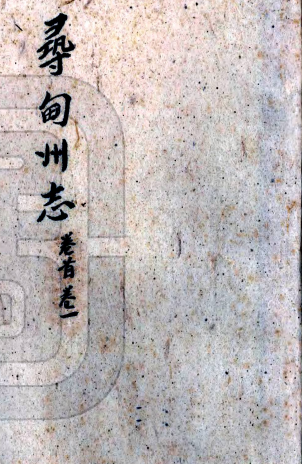 尋甸州志
卷首卷一